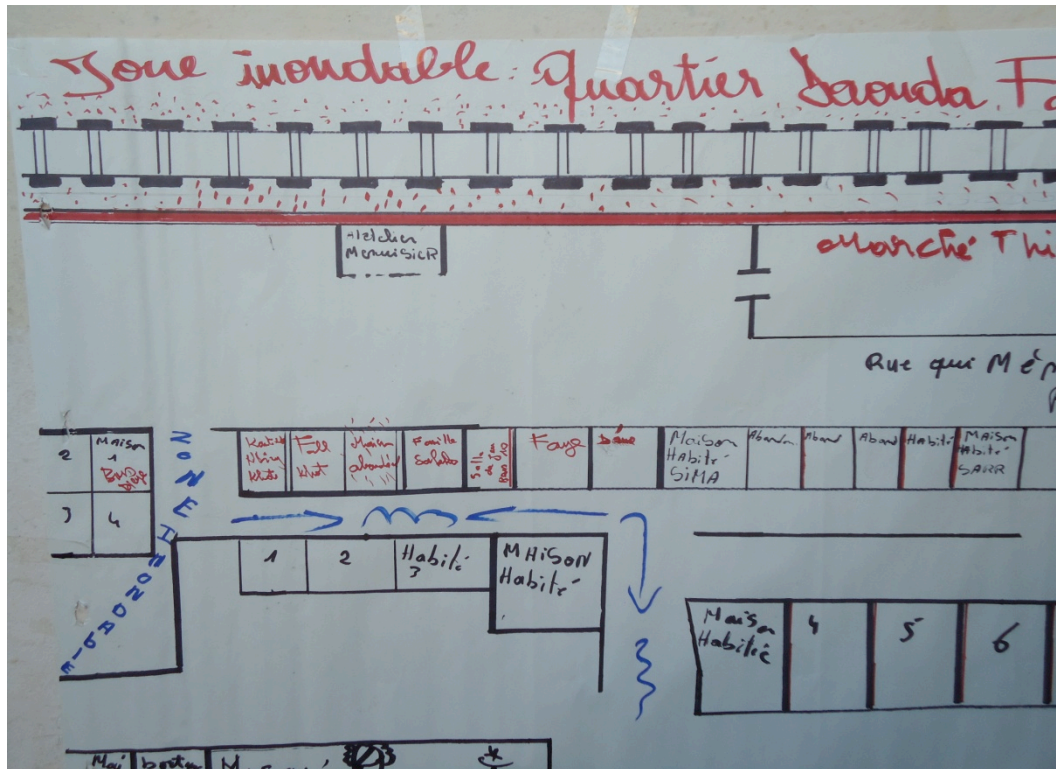 Zone inondable: Quartier Daouda Fa
Atelcher
MenuiSieR
Marché Thi
Rue qui Mén
2
Maison
1
3
4
ZONE INONDABLE
Fall
Khot
Maison
abandon
Famille
Salle
de Jeu
Faye
Maison
Habité
SiMA
Abandon
Aband
Aband
Habité
MAiSon
Habité
SARR
1
2
Habité
3
MAiSon
Habité
Maison
Habitée
4
5
6
Mai